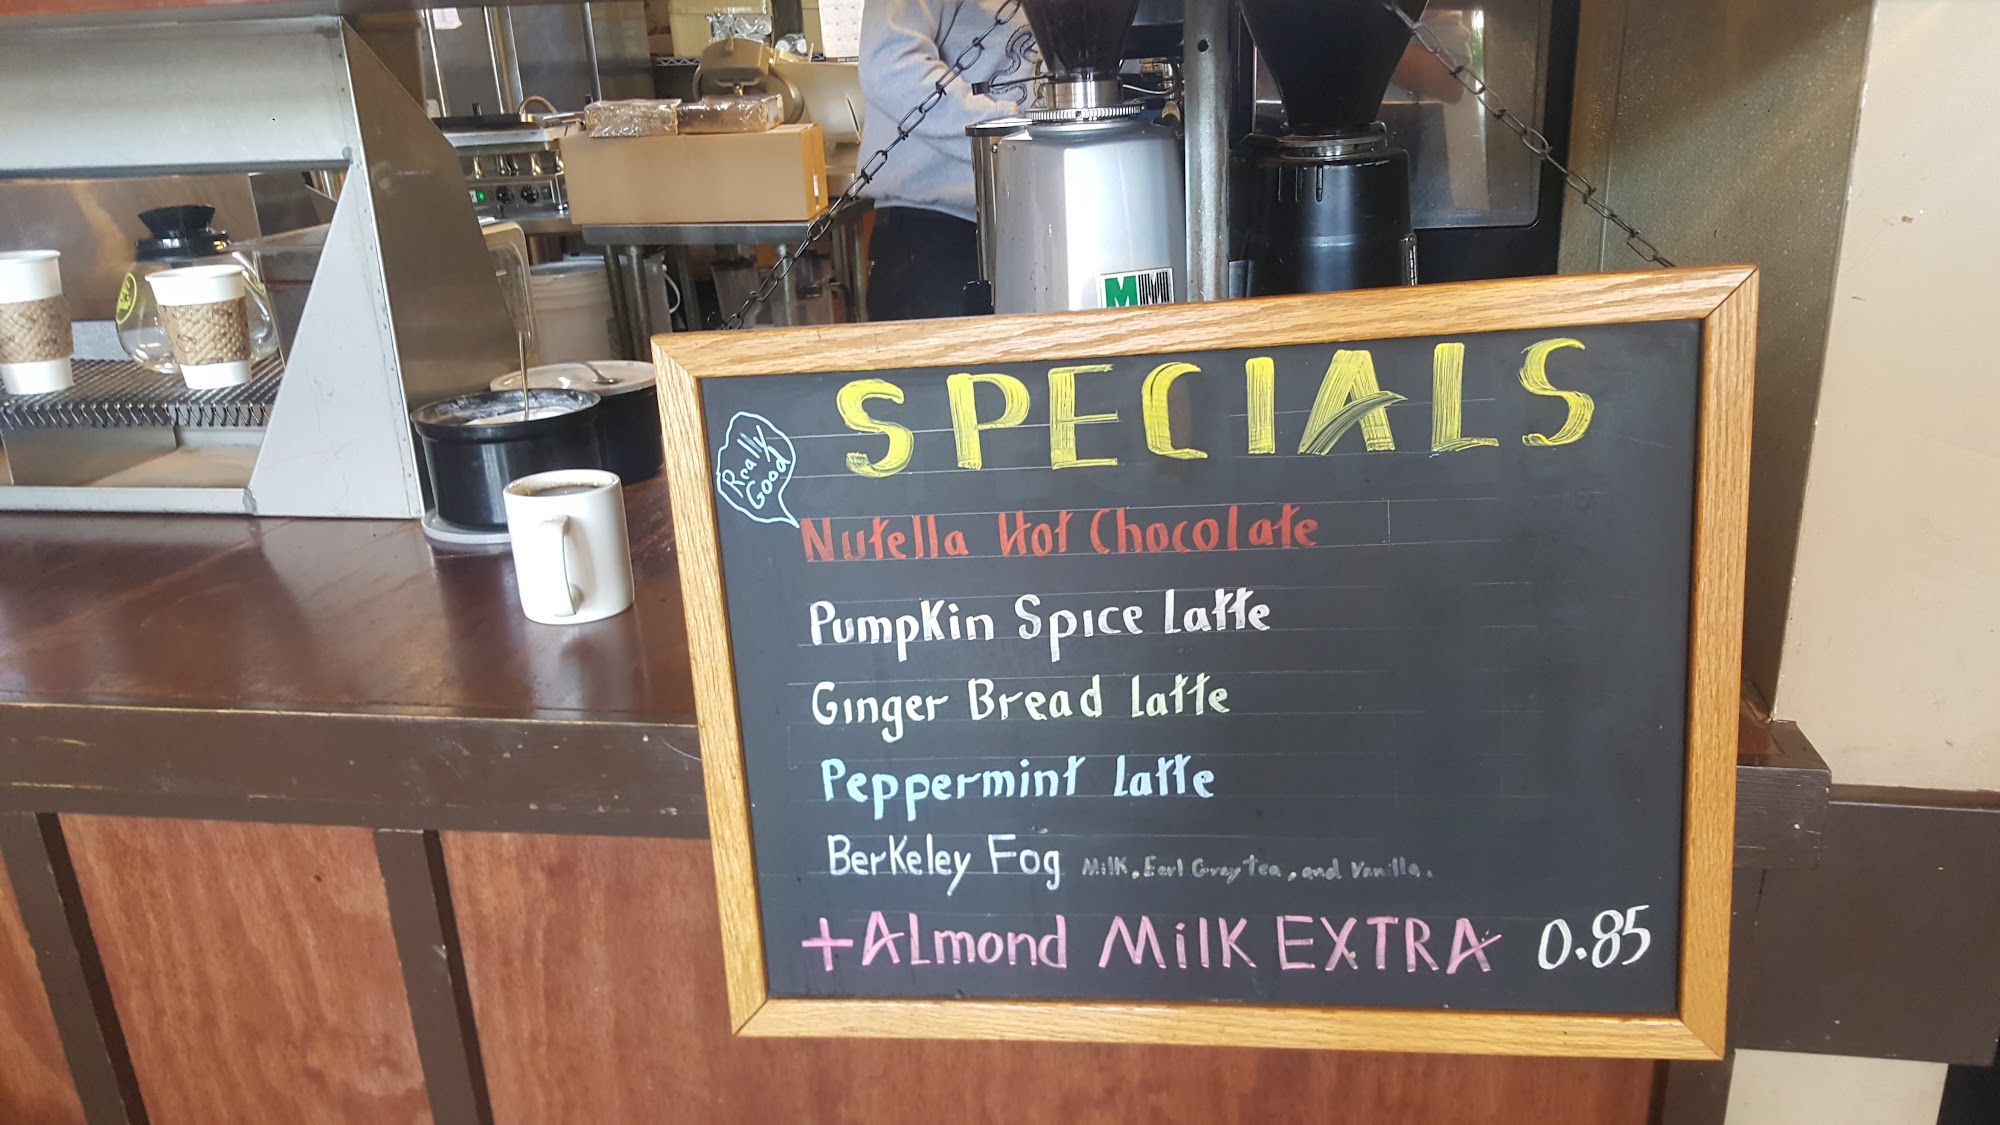 SPECIALS
Really
Good
Nutella Hot Chocolate
Pumpkin Spice Latte
Ginger Bread Latte
Peppermint Latte
Berkeley Fog Milk, Earl Gray tea, and Vanilla.
+Almond Milk EXTRA 0.85
M